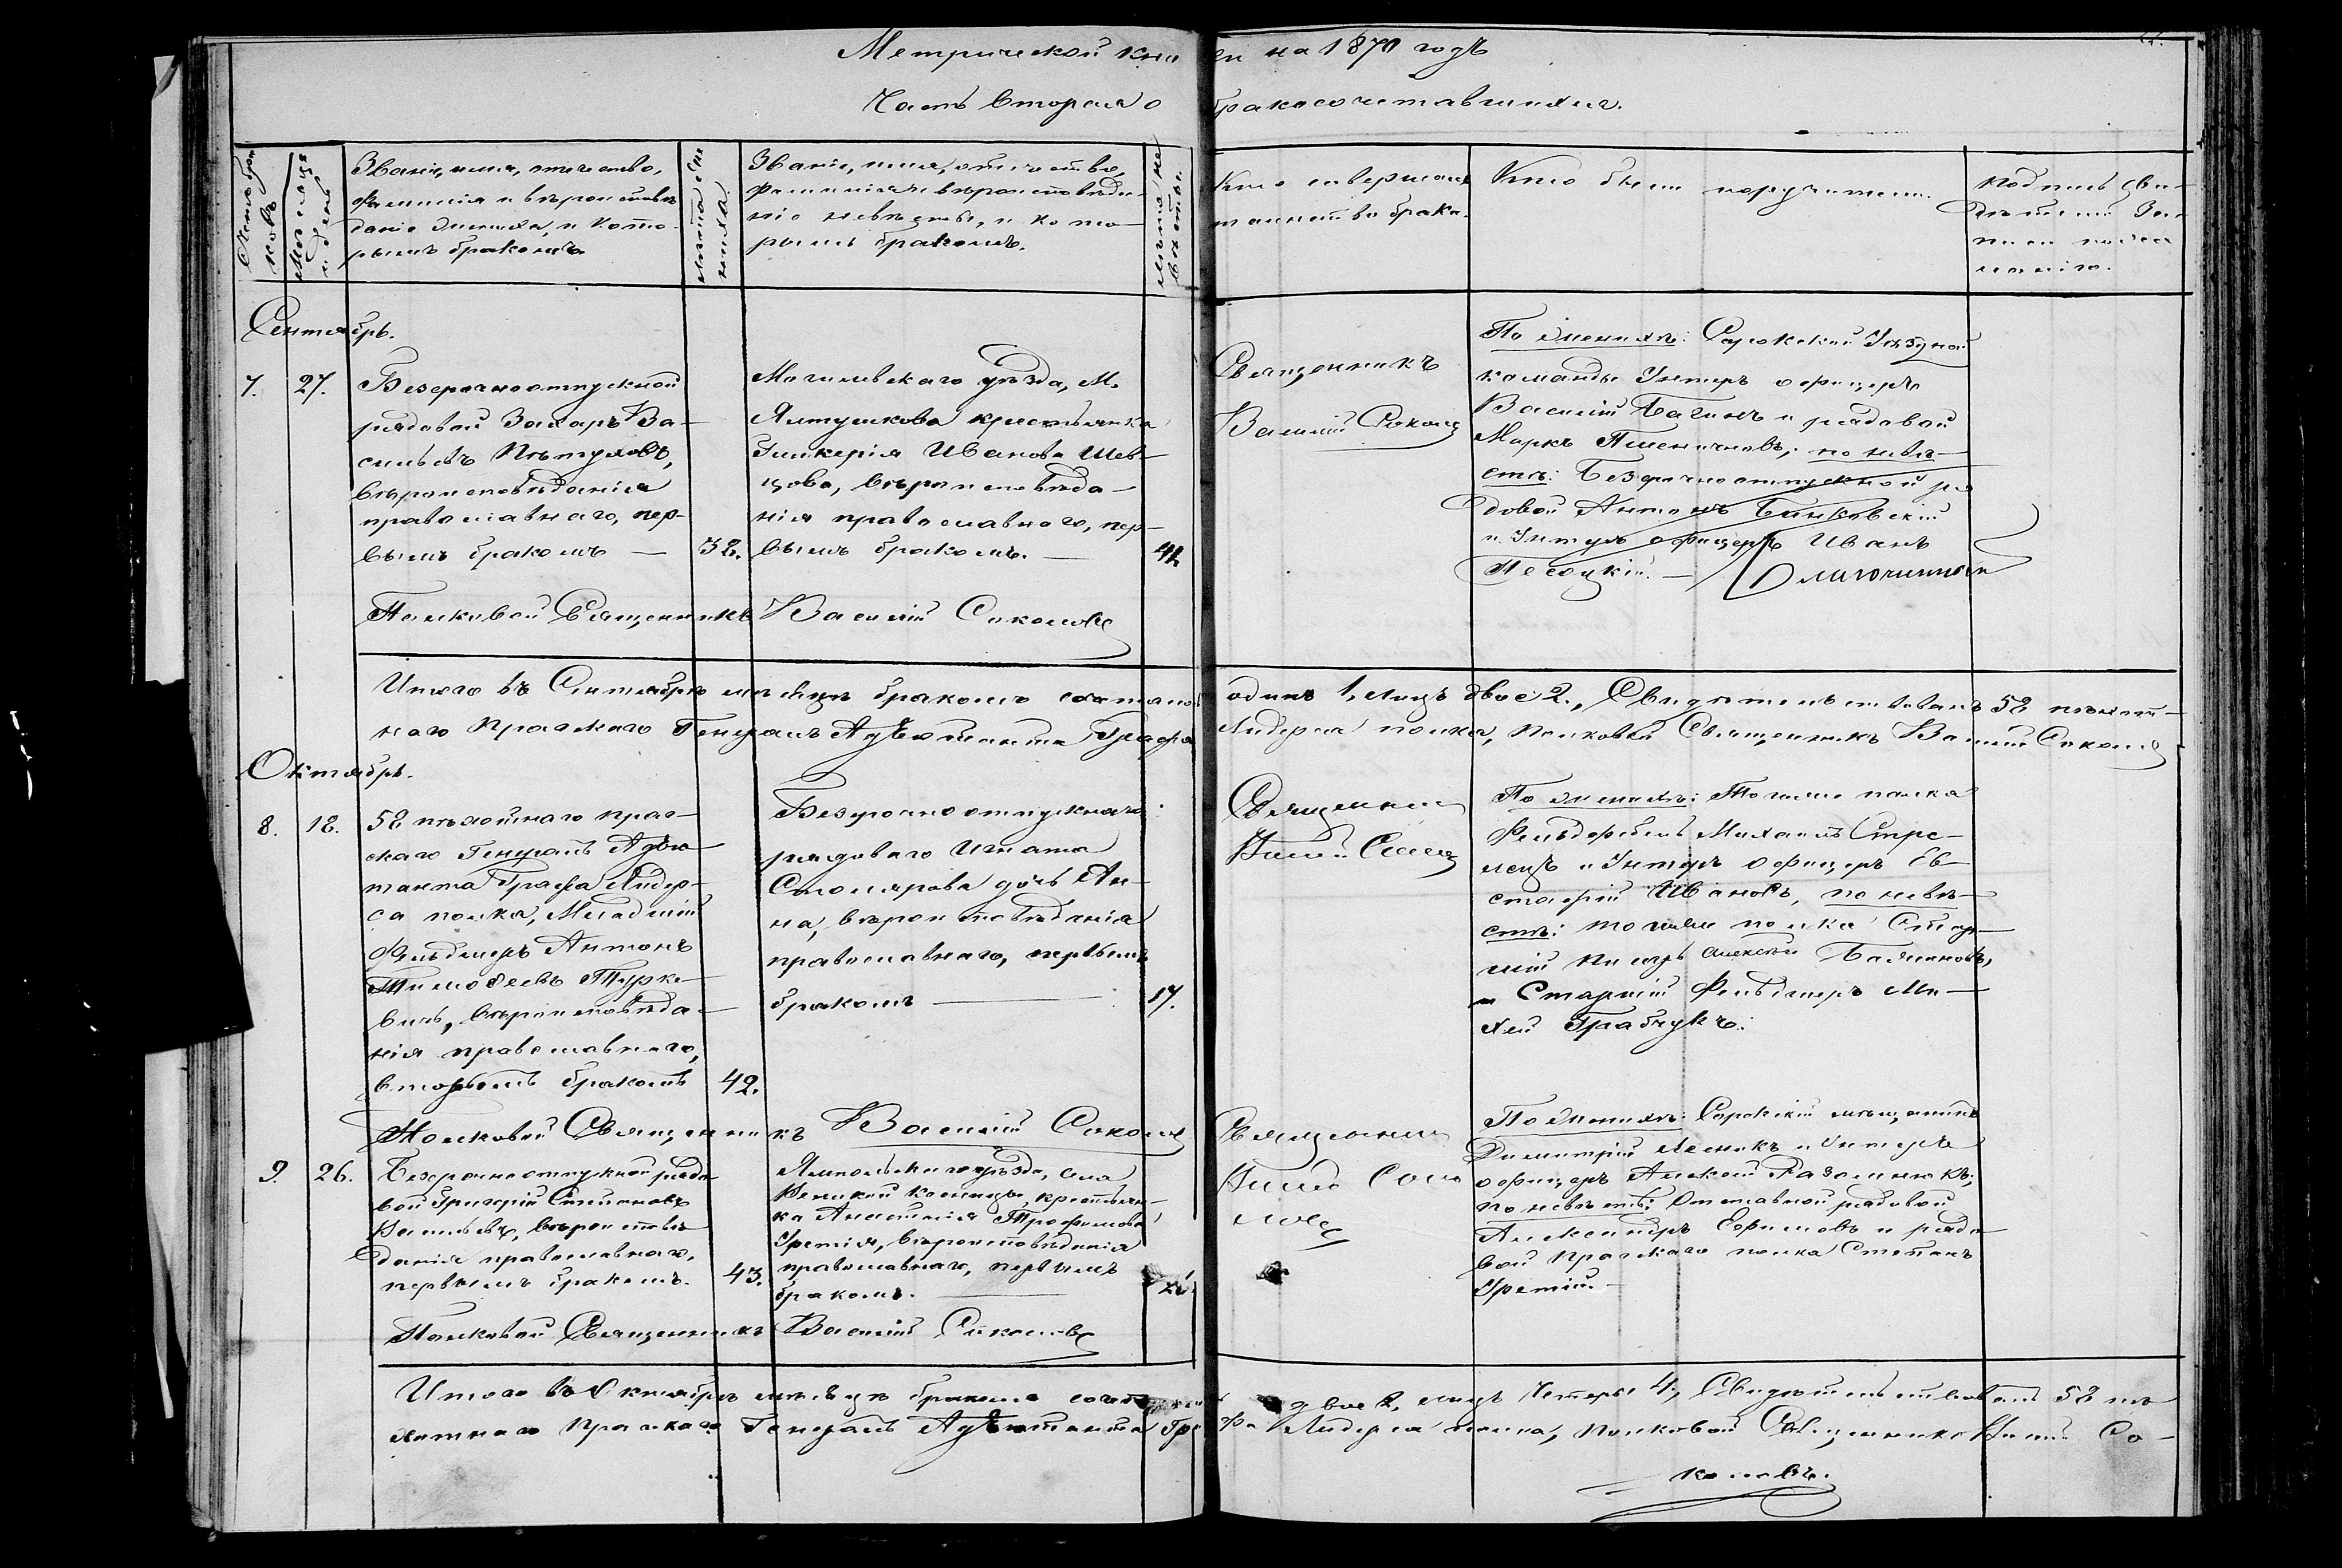 Метрической кни
ги на 1870 годъ
Часть Вторая о
бракосочетавшихся.
Счетъ бра
ковъ
Мѣсяцъ
и день
Званіе, имя, отчество,
фамилія и вѣроисповѣ
даніе жениха, и кото
рымъ бракомъ
Лѣта же
ниха.
Званіе, имя, отчество,
фамилія и вѣроисповѣда
ніе невѣсты, и кото
рымъ бракомъ.
Лѣта не
вѣсты.
Кто совершалъ
таинство брака.
Кто были поручители.
Подпись сви
дѣтелей за
писи по же
ланію.
Сентябрь.
7.
27.
Безсрочноотпускной
рядовой Захаръ Ва
сильевъ Пѣтуховъ,
вѣроисповѣданія
православнаго, пер
вымъ бракомъ
32.
Могилевскаго уѣзда, м.
Ялтушкова крестьянка
Гликерія Иванова Шев
цова, вѣроисповѣда
нія православнаго, пер
вымъ бракомъ.
Священникъ
Василій Соколо
По женихѣ: Сорокской Уѣздной
команды Унтеръ офицеръ
Василій Багинъ и рядовой
Маркъ Пшеничновъ; по невѣ
стѣ: Безсрочноотпускной ря
довой Антонъ Банковскій
и Унтеръ офицеръ Иванъ
Песоцкій.
Полковой Священникъ Василій Соколовъ
Итого въ Сентябрѣ мѣсяцѣ бракомъ сочтано
одинъ 1, лицъ двое 2., Свидѣтельствовалъ 52 пѣхот
наго Пражскаго Генералъ Адъютанта Графа
Лидерса полка, Полковой Священникъ Василій Соколо
Октябрь.
8.
12.
52 пѣхотнаго Праж
скаго Генералъ Адъю
танта Графа Лидер
са полка, Младшій
Фельдшеръ Антонъ
Тимофеевъ Турке
вичъ, вѣроисповѣда
нія православнаго,
вторымъ бракомъ
42.
Безсрочноотпускнаго
рядоваго Игната
Столярова дочь Ан
на, вѣроисповѣданія
православнаго, первымъ
бракомъ
17.
Священникъ
По женихѣ: Тогоже полка
Фельдфебель Михаилъ Стре
лецъ и Унтеръ офицеръ Ев
стафій Ивановъ, по невѣ
стѣ: тогоже полка Стар
шій писарь Алексѣй
и Старшій Фельдшеръ Ми
хей Грабчукъ.
Полковой Священникъ Василій Соколо
9.
26.
Безсрочноотпускной рядо
вой Григорій Степановъ
Васильевъ, вѣроисповѣ
данія православнаго,
первымъ бракомъ.
43.
Ямпольскаго уѣзда, села
Великой Косницы, крестьян
ка Анастасія Трофимова
Гретія, вѣроисповѣданія
православнаго, первымъ
бракомъ.
Священникъ
По женихѣ: Сорокскій мѣщанинъ
Димитрій Лесникъ и Унтеръ
офицеръ Алексѣй Разолинюкъ;
по невѣстѣ: Отставной рядовой
Александръ Ефимовъ и рядо
вой Пражскаго полка Степанъ
Гретій.
Полковой Священникъ Василій Соколовъ
Итого въ Октябрѣ мѣсяцѣ бракомъ
двое 2, лицъ Четыре 4, Свидѣтельствовалъ 52 пѣ
хотнаго Пражскаго Генералъ Адъютанта Гра
фа Лидерса полка, Полковой Священникъ Василій Со
коловъ.